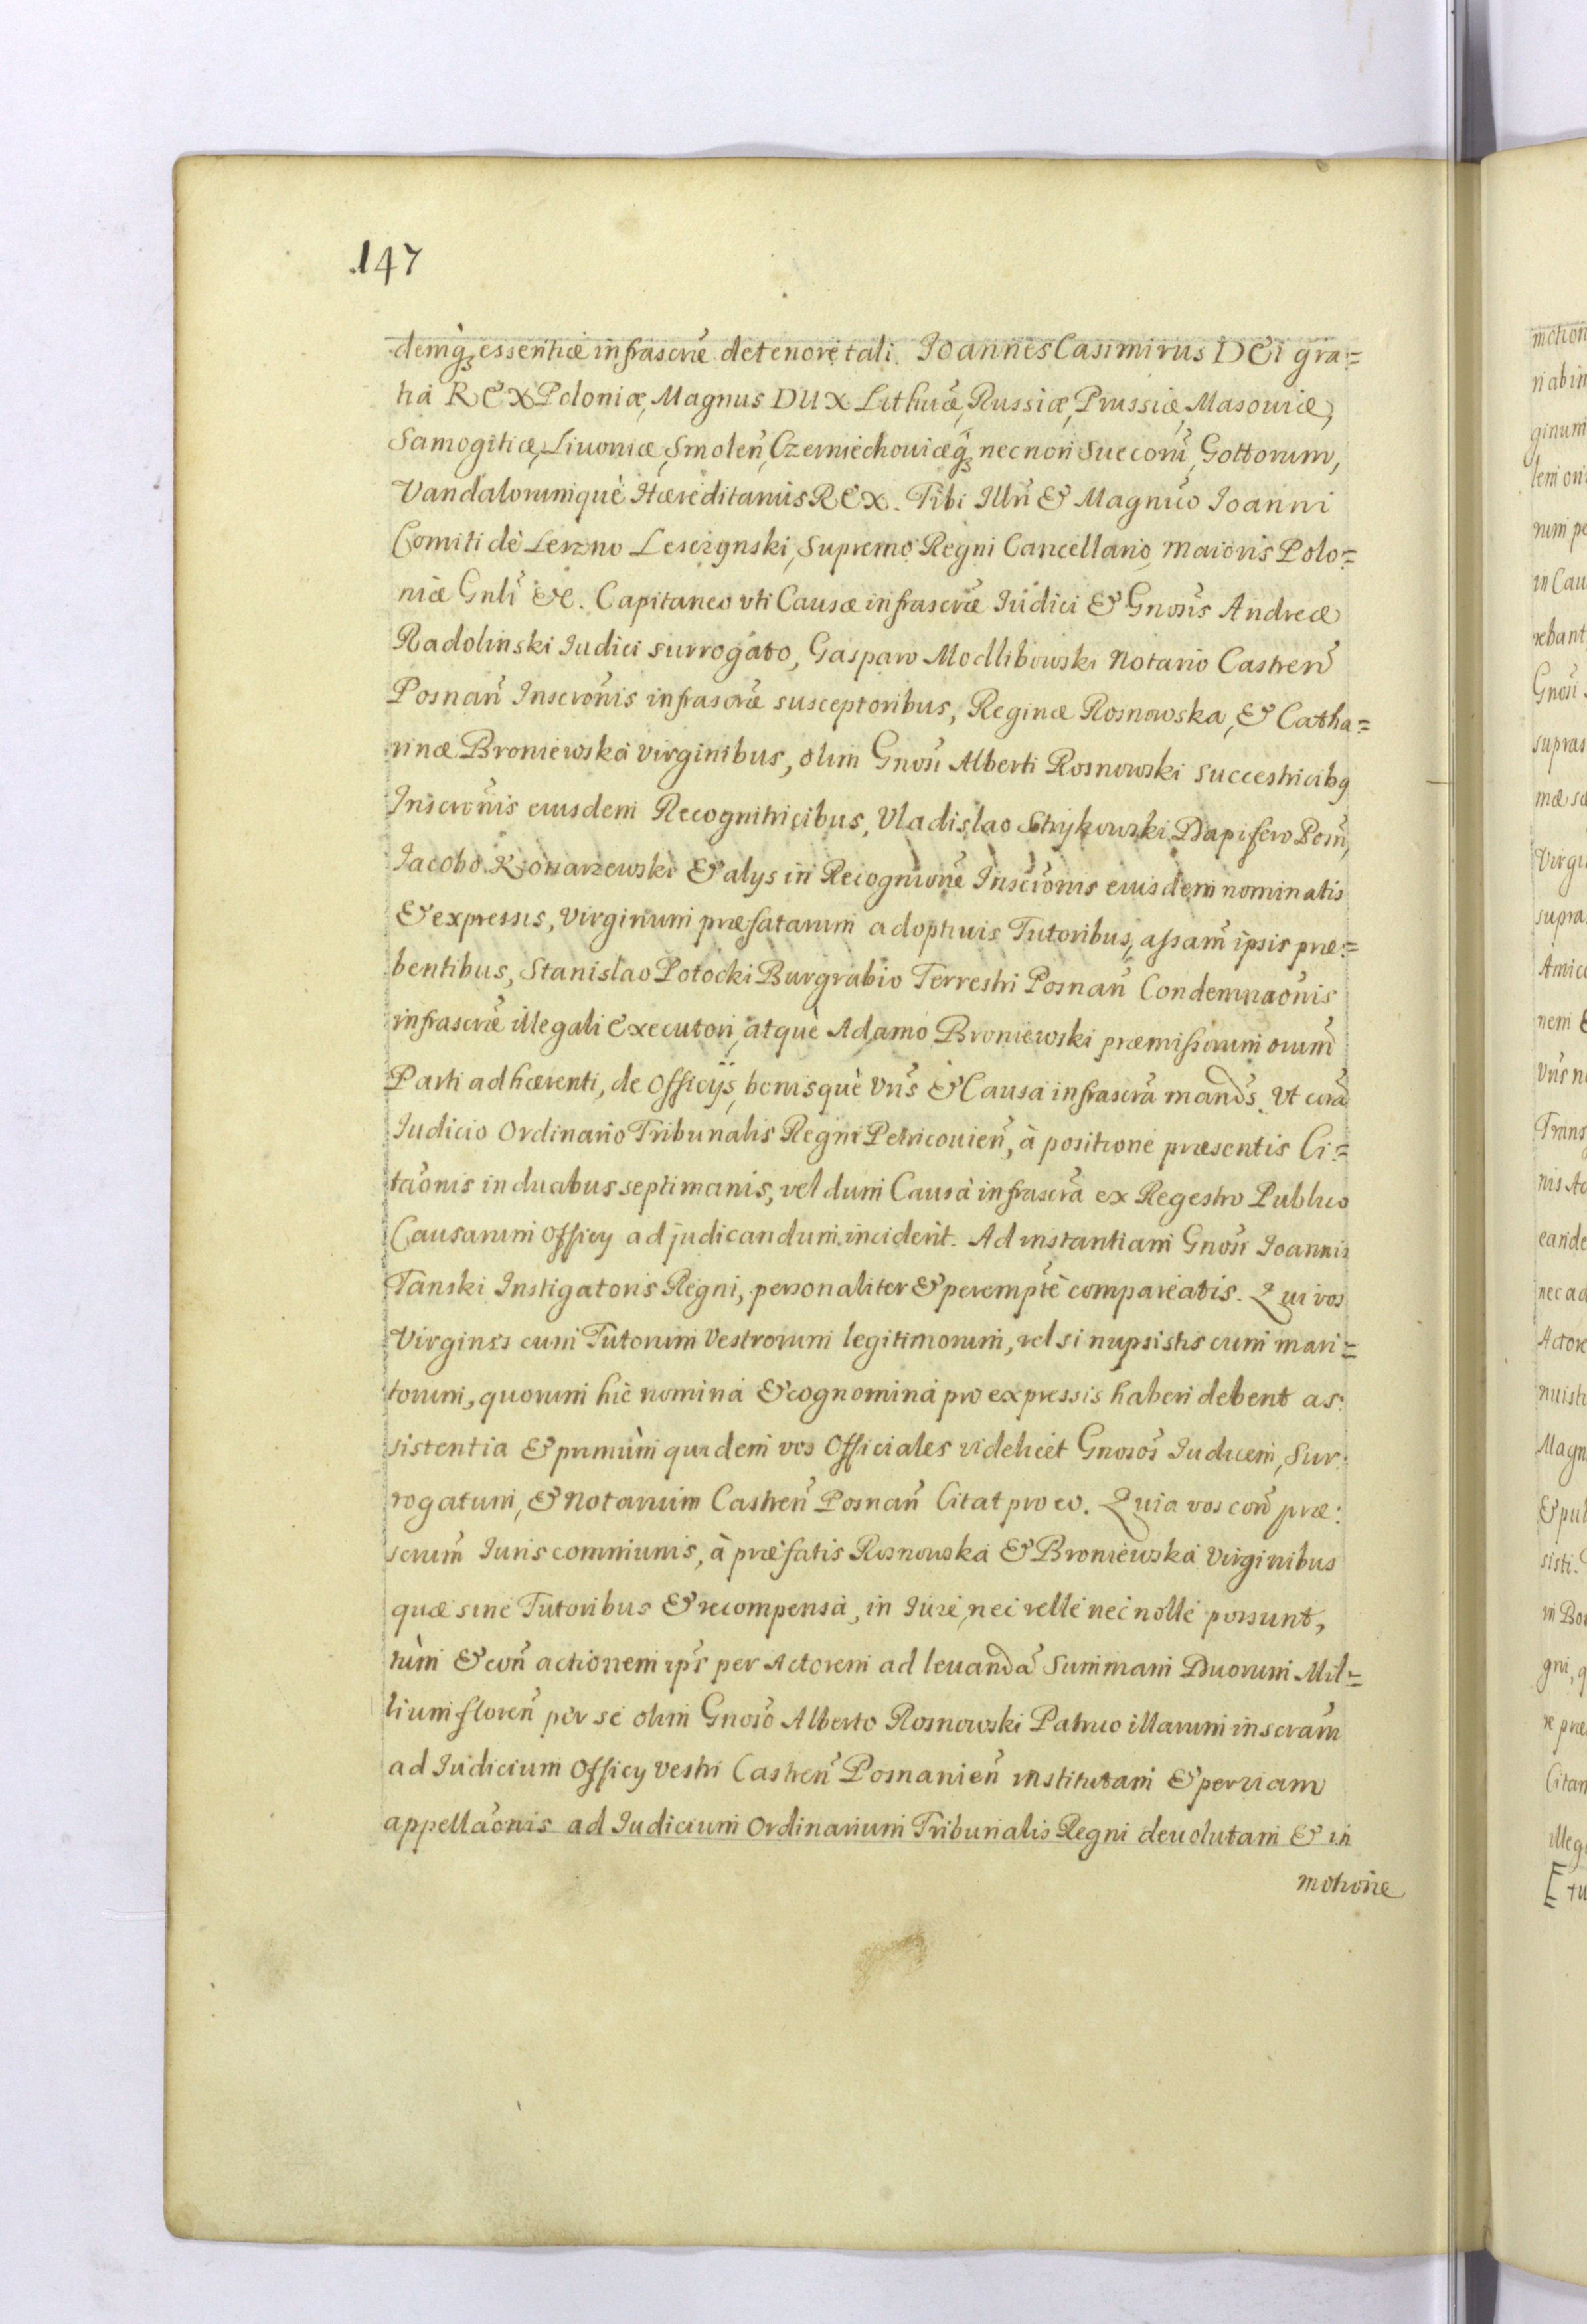 147
demq́ꝫ essentiæ infrascræ̃ de tenore tali. Joannes Casimirus DEI gra=
tia REX Poloniæ, Magnus DUX Lithuæ̃, Russiæ, Prussiæ Masouiæ,
Samogitiæ, Liuoniæ, Smoleñ, Czerniechouiæq́ꝫ nec non Suecorũ, Gottorum,
Vandalorumquè Hæreditarius REX. Tibi Illrĩ & Magnĩco Joanni
Comiti dè Leszno Lesczynski, Supremo Regni Cancellario, Maioris Polo=
niæ Gnlĩ &c. Capitaneo vti Causæ infrascræ̃ Iudici & Gnosĩs Andreæ
Radolinski Iudici surrogato, Gasparo Modlibowski Notario Castreñ
Posnañ Inscrõnis infrascræ̃ susceptoribus, Reginæ Rosnowska, & Catha=
rinæ Broniewska virginibus, olim Gnosĩ Alberti Rosnowski succestricibꝫ
Inscrõnis eiusdem Recognitricibus, Vladislao Strykowski Dapifero Posñ,
Jacobo Konarzewski & alys in Recognitione Inscrõnis eiusdem nominatis
& expressis, virginum præfatarum adoptiuis Tutoribus, assam̃ ipsis præ=
bentibus, Stanislao Potocki Burgrabio Terrestri Posnañ Condemnaõnis
infrascræ̃ illegali Executori, atquè Adamo Broniewski præmissorum oium̃
Parti adhærenti, de Officijs, bonisquè vrĩs & Causa infrascrã mandõs. Vt corã
Iudicio Ordinario Tribunalis Regni Petricouieñ, à positione præsentis Ci=
taõnis in duabus septimanis, vel dum Causa infrascrã ex Regestro Publico
Causarum Officy ad judicandum inciderit. Ad instantiam Gnosĩ Joannis
Tanski Instigatoris Regni, personaliter & peremptẽ compareatis. Qui vos
Virgines cum Tutorum vestrorum legitimorum, vel si nupsistis cum mari=
torum, quorum hic nomina & cognomina pro expressis haberi debent as:
sistentia & primùm quidem vos Officiales videlicet Gnosos̃ Iudicem, Sur:
rogatum, & Notarium Castreñ Posnañ Citat pro eo. Quia vos coñ præ:
scrum̃ Iuris communis, à præfatis Rosnowska & Broniewska virginibus
quæ sine Tutoribus & recompensa, in Iure, nec velle nec nolle possunt,
tùm & coñ actionem ips̃ per Actorem ad leuandã Summam Duorum Mil=
lium floreñ per se olim Gnosõ Alberto Rosnowski Patruo illarum inscram̃
ad Iudicium Officy vestri Castreñ Posnanieñ institutam & per viam
appellaõnis ad Iudicium Ordinarium Tribunalis Regni deuolutam & in
motione